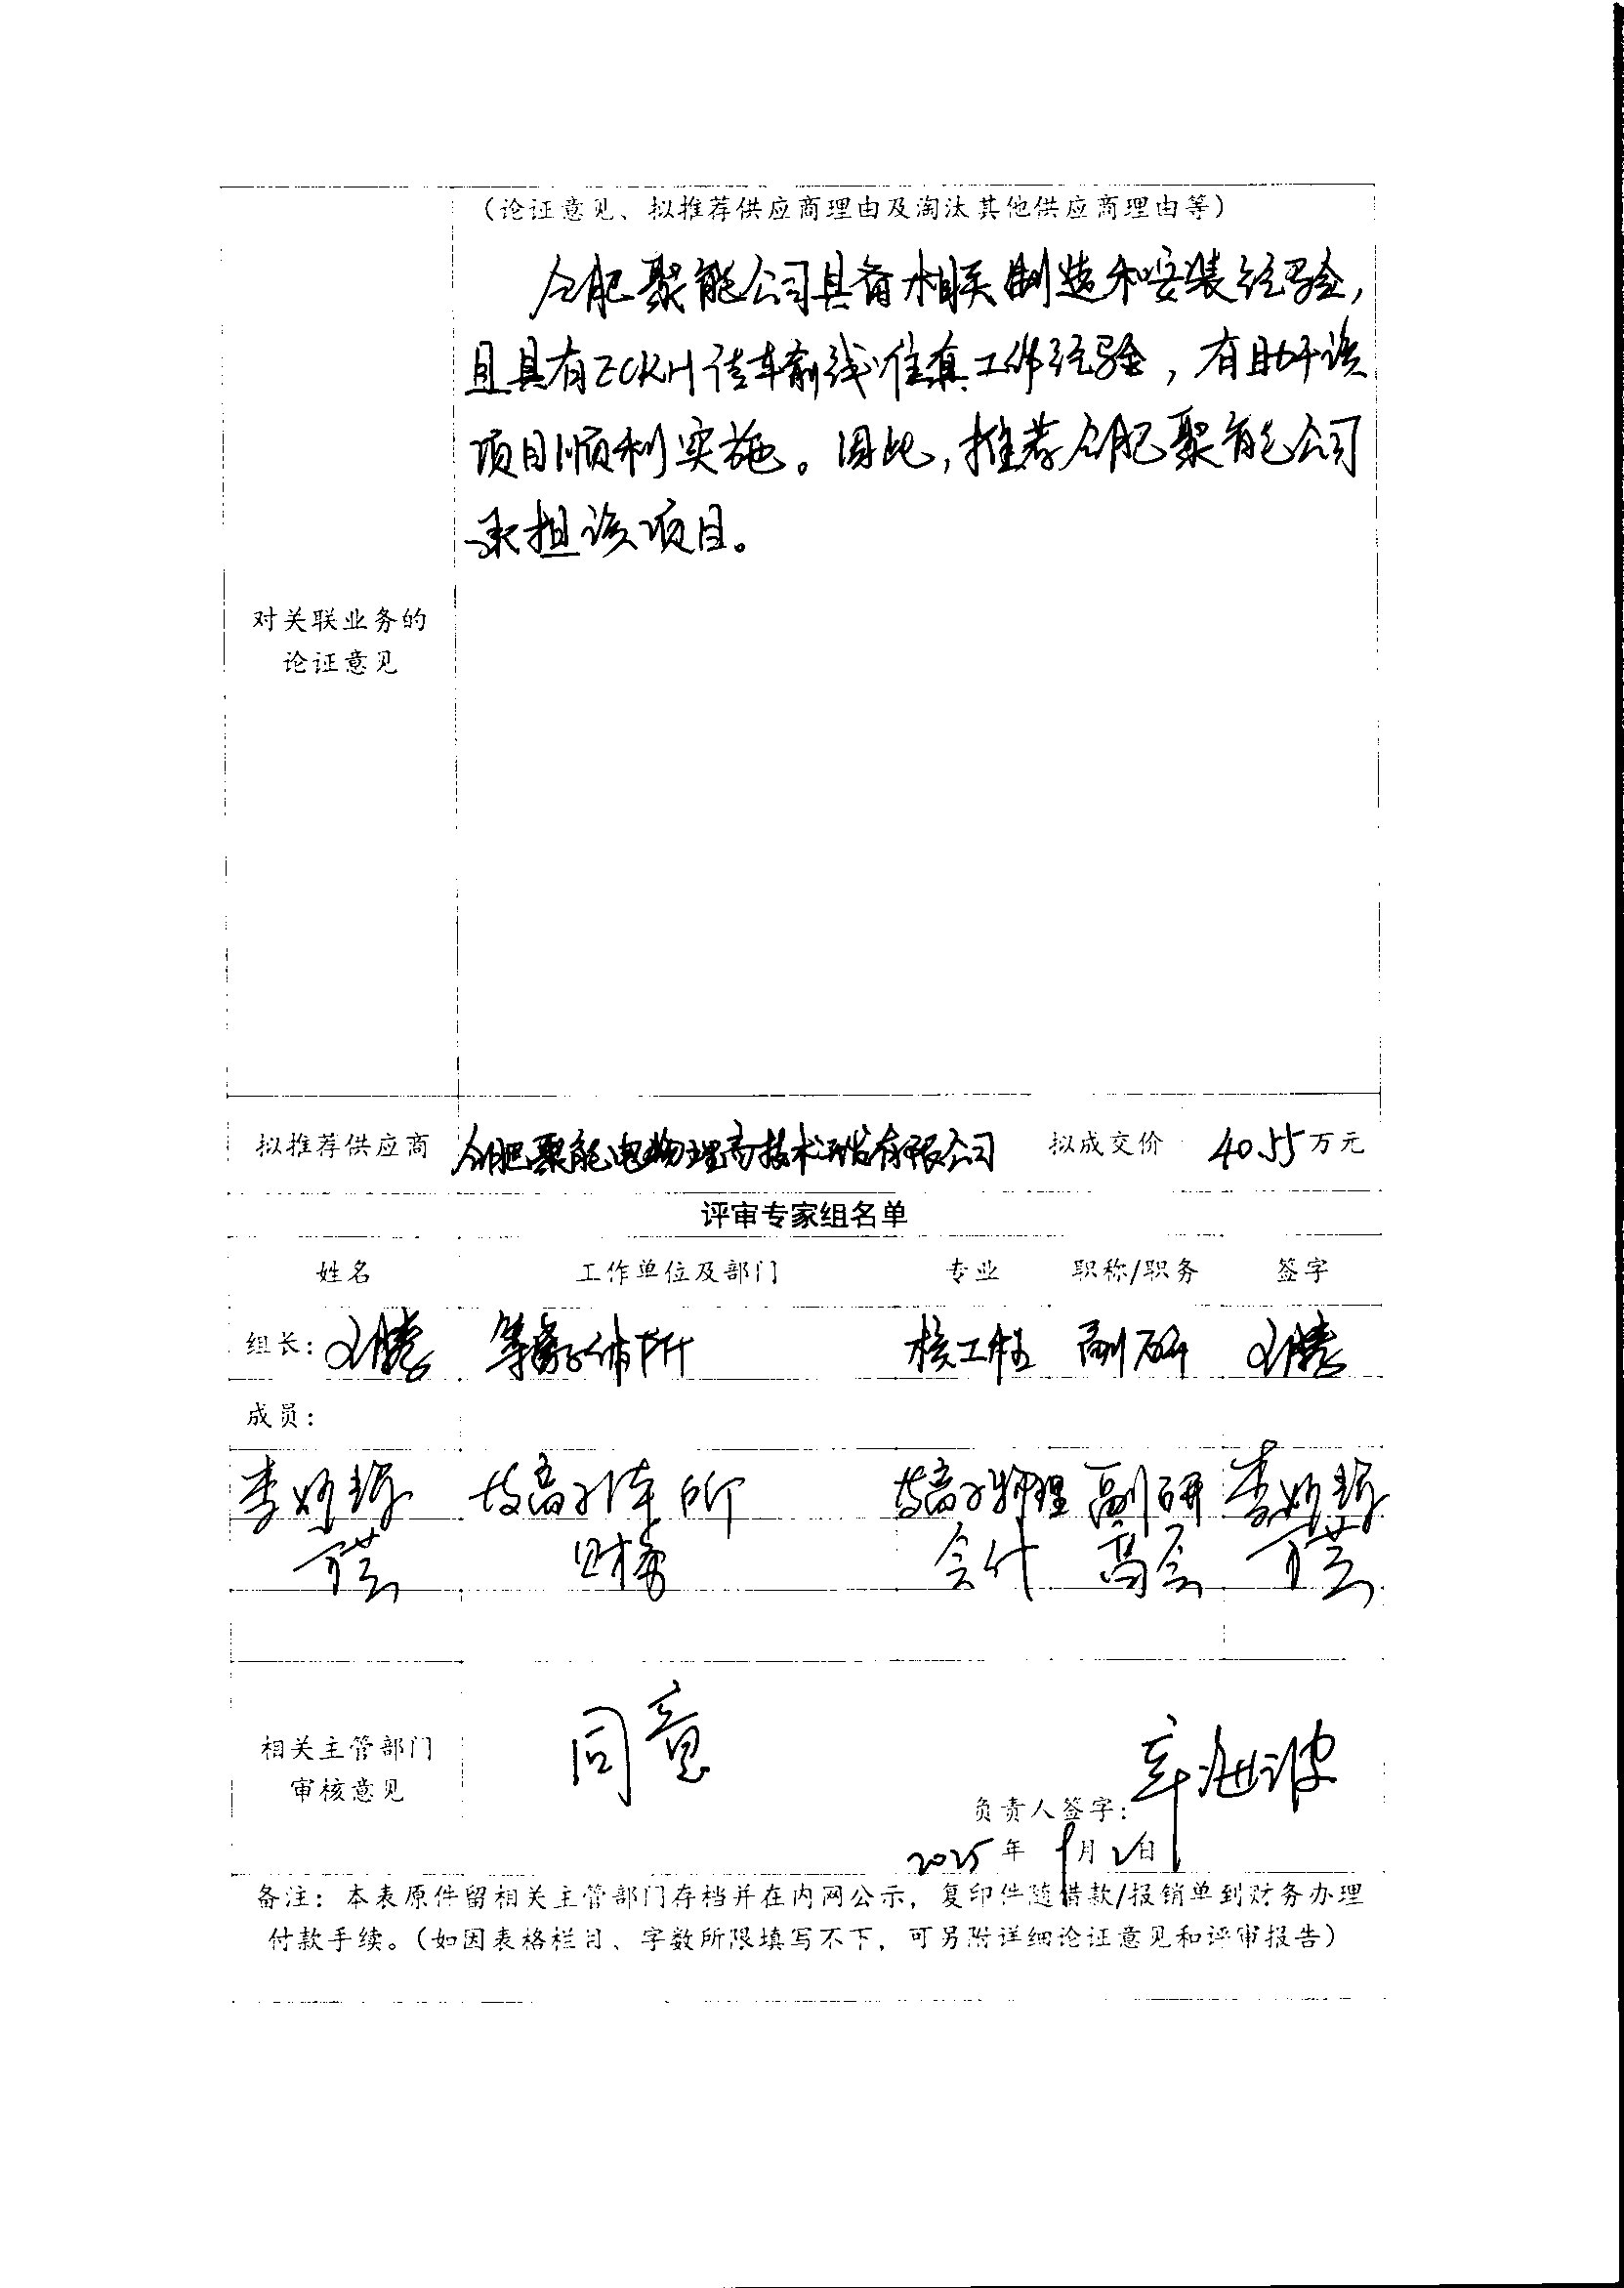 （论证意见、拟推荐供应商理由及淘汰其他供应商理由等）
合肥聚能公司具备相关制造和安装经验，
且具有ECRH传输线准直工作经验，有助于该
项目顺利实施。因此，推荐合肥聚能公司
承担该项目。
对关联业务的
论证意见
拟推荐供应商 合肥聚能电物理高技术开发有限公司 拟成交价 40.55万元
评审专家组名单
姓名 工作单位及部门 专业 职称/职务 签字
组长：王腾 等离子体所 核工程 副研 王腾
成员：
李妙 所 物理 副研 李妙
丁芸 财务 会计 高会 丁芸
同意
相关主管部门
审核意见
负责人签字：辛海波
2025年 月2日
备注：本表原件留相关主管部门存档并在内网公示，复印件随借款/报销单到财务办理
付款手续。（如因表格栏目、字数所限填写不下，可另附详细论证意见和评审报告）